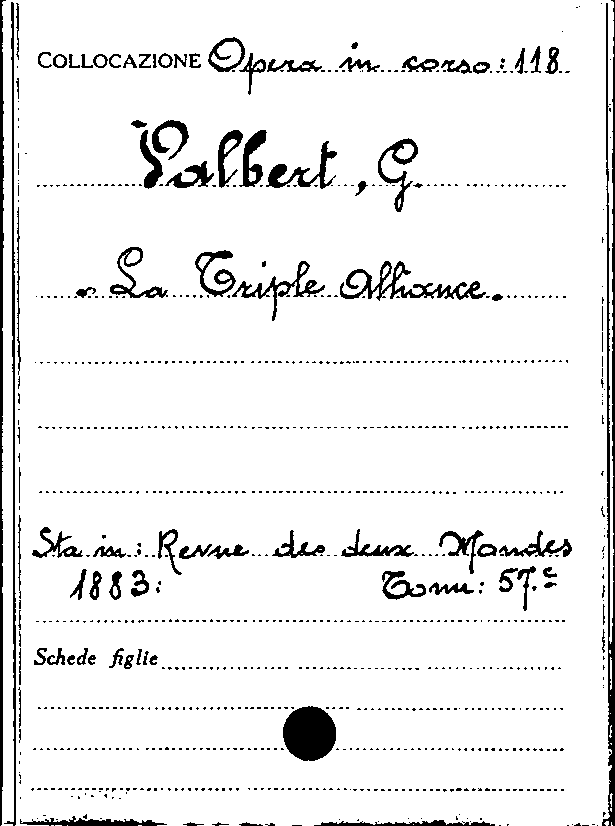 COLLOCAZIONE Opera in corso: 118
Valbert, G.
La Triple Alliance.
Sta in: Revue des deux Mondes
1883: Tome: 57.e
Schede figlie